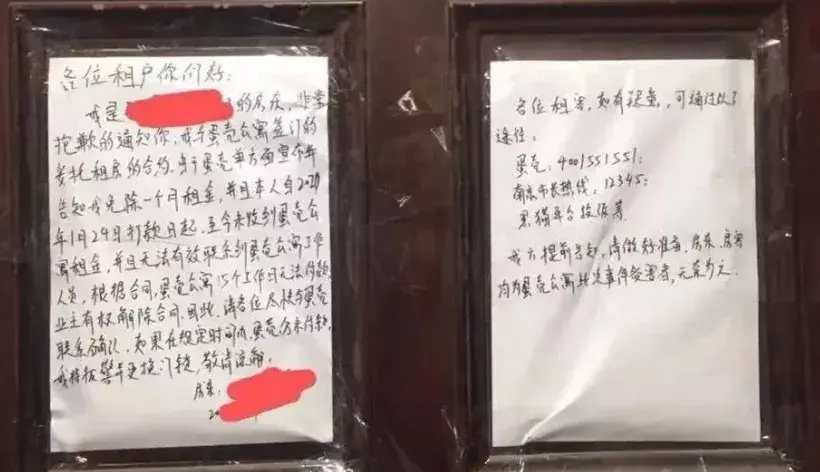 各位租户你们好：
我是 的房东，非常
抱歉的通知你，我与蛋壳公寓签订的
委托租房的合约，由于蛋壳单方面宣布并
告知我免除一个月租金，并且本人自2020
年1月24日打款日起，至今未收到蛋壳公
寓租金，并且无法有效联系到蛋壳公寓工作
人员，根据合同，蛋壳公寓15个工作日无法付款，
业主有权解除合同，因此，请各位尽快与蛋壳
联系确认，如果在规定时间内，蛋壳仍未付款，
我将报警并更换门锁，敬请谅解。
房东：
20
各位租客，如有疑虑，可通过以下
途径：
蛋壳：4001551551；
南京市长热线：12345；
黑猫平台投诉等
我方提前告知，请做好准备，房东、房客
均为蛋壳公寓此次事件受害者，无奈为之.